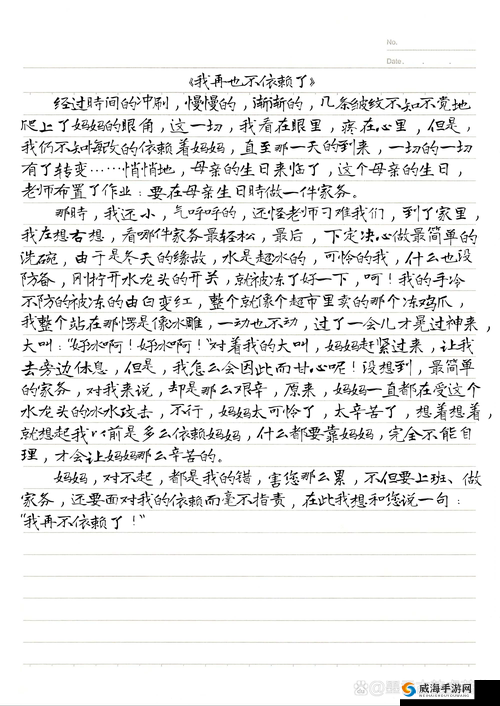 No.
Date.
《我再也不依赖了》
经过时间的冲刷，慢慢的，渐渐的，几条皱纹不知不觉地
爬上了妈妈的眼角，这一切，我看在眼里，疼在心里，但是，
我仍不知悔改的依赖着妈妈，直至那一天的到来，一切的一切
有了转变……悄悄地，母亲的生日来临了，这个母亲的生日，
老师布置了作业：要在母亲生日时做一件家务。
那时，我还小，气呼呼的，还怪老师刁难我们，到了家里，
我左想右想，看哪件家务最轻松，最后，下定决心做最简单的
洗碗，由于是冬天的缘故，水是超冰的，可怜的我，什么也没
防备，刚拧开水龙头的开关，就被冻了好一下，呵！我的手冷
不防的被冻的由白变红，整个就像个超市里卖的那个冻鸡爪，
我整个站在那愣是像冰雕，一动也不动，过了一会儿才晃过神来，
大叫："好冰啊！好冰啊！"对着我的大叫，妈妈赶紧过来，让我
去旁边休息，但是，我怎么会因此而甘心呢！没想到，最简单
的家务，对我来说，却是那么艰辛，原来，妈妈一直都在受这个
水龙头的冰水攻击，不行，妈妈太可怜了，太辛苦了，想着想着，
就想起我以前是多么依赖妈妈，什么都要靠妈妈，完全不能自
理，才会让妈妈那么辛苦的。
妈妈，对不起，都是我的错，害您那么累，不但要上班、做
家务，还要面对我的依赖而毫不指责，在此我想和您说一句：
"我再不依赖了！"
威海手游网